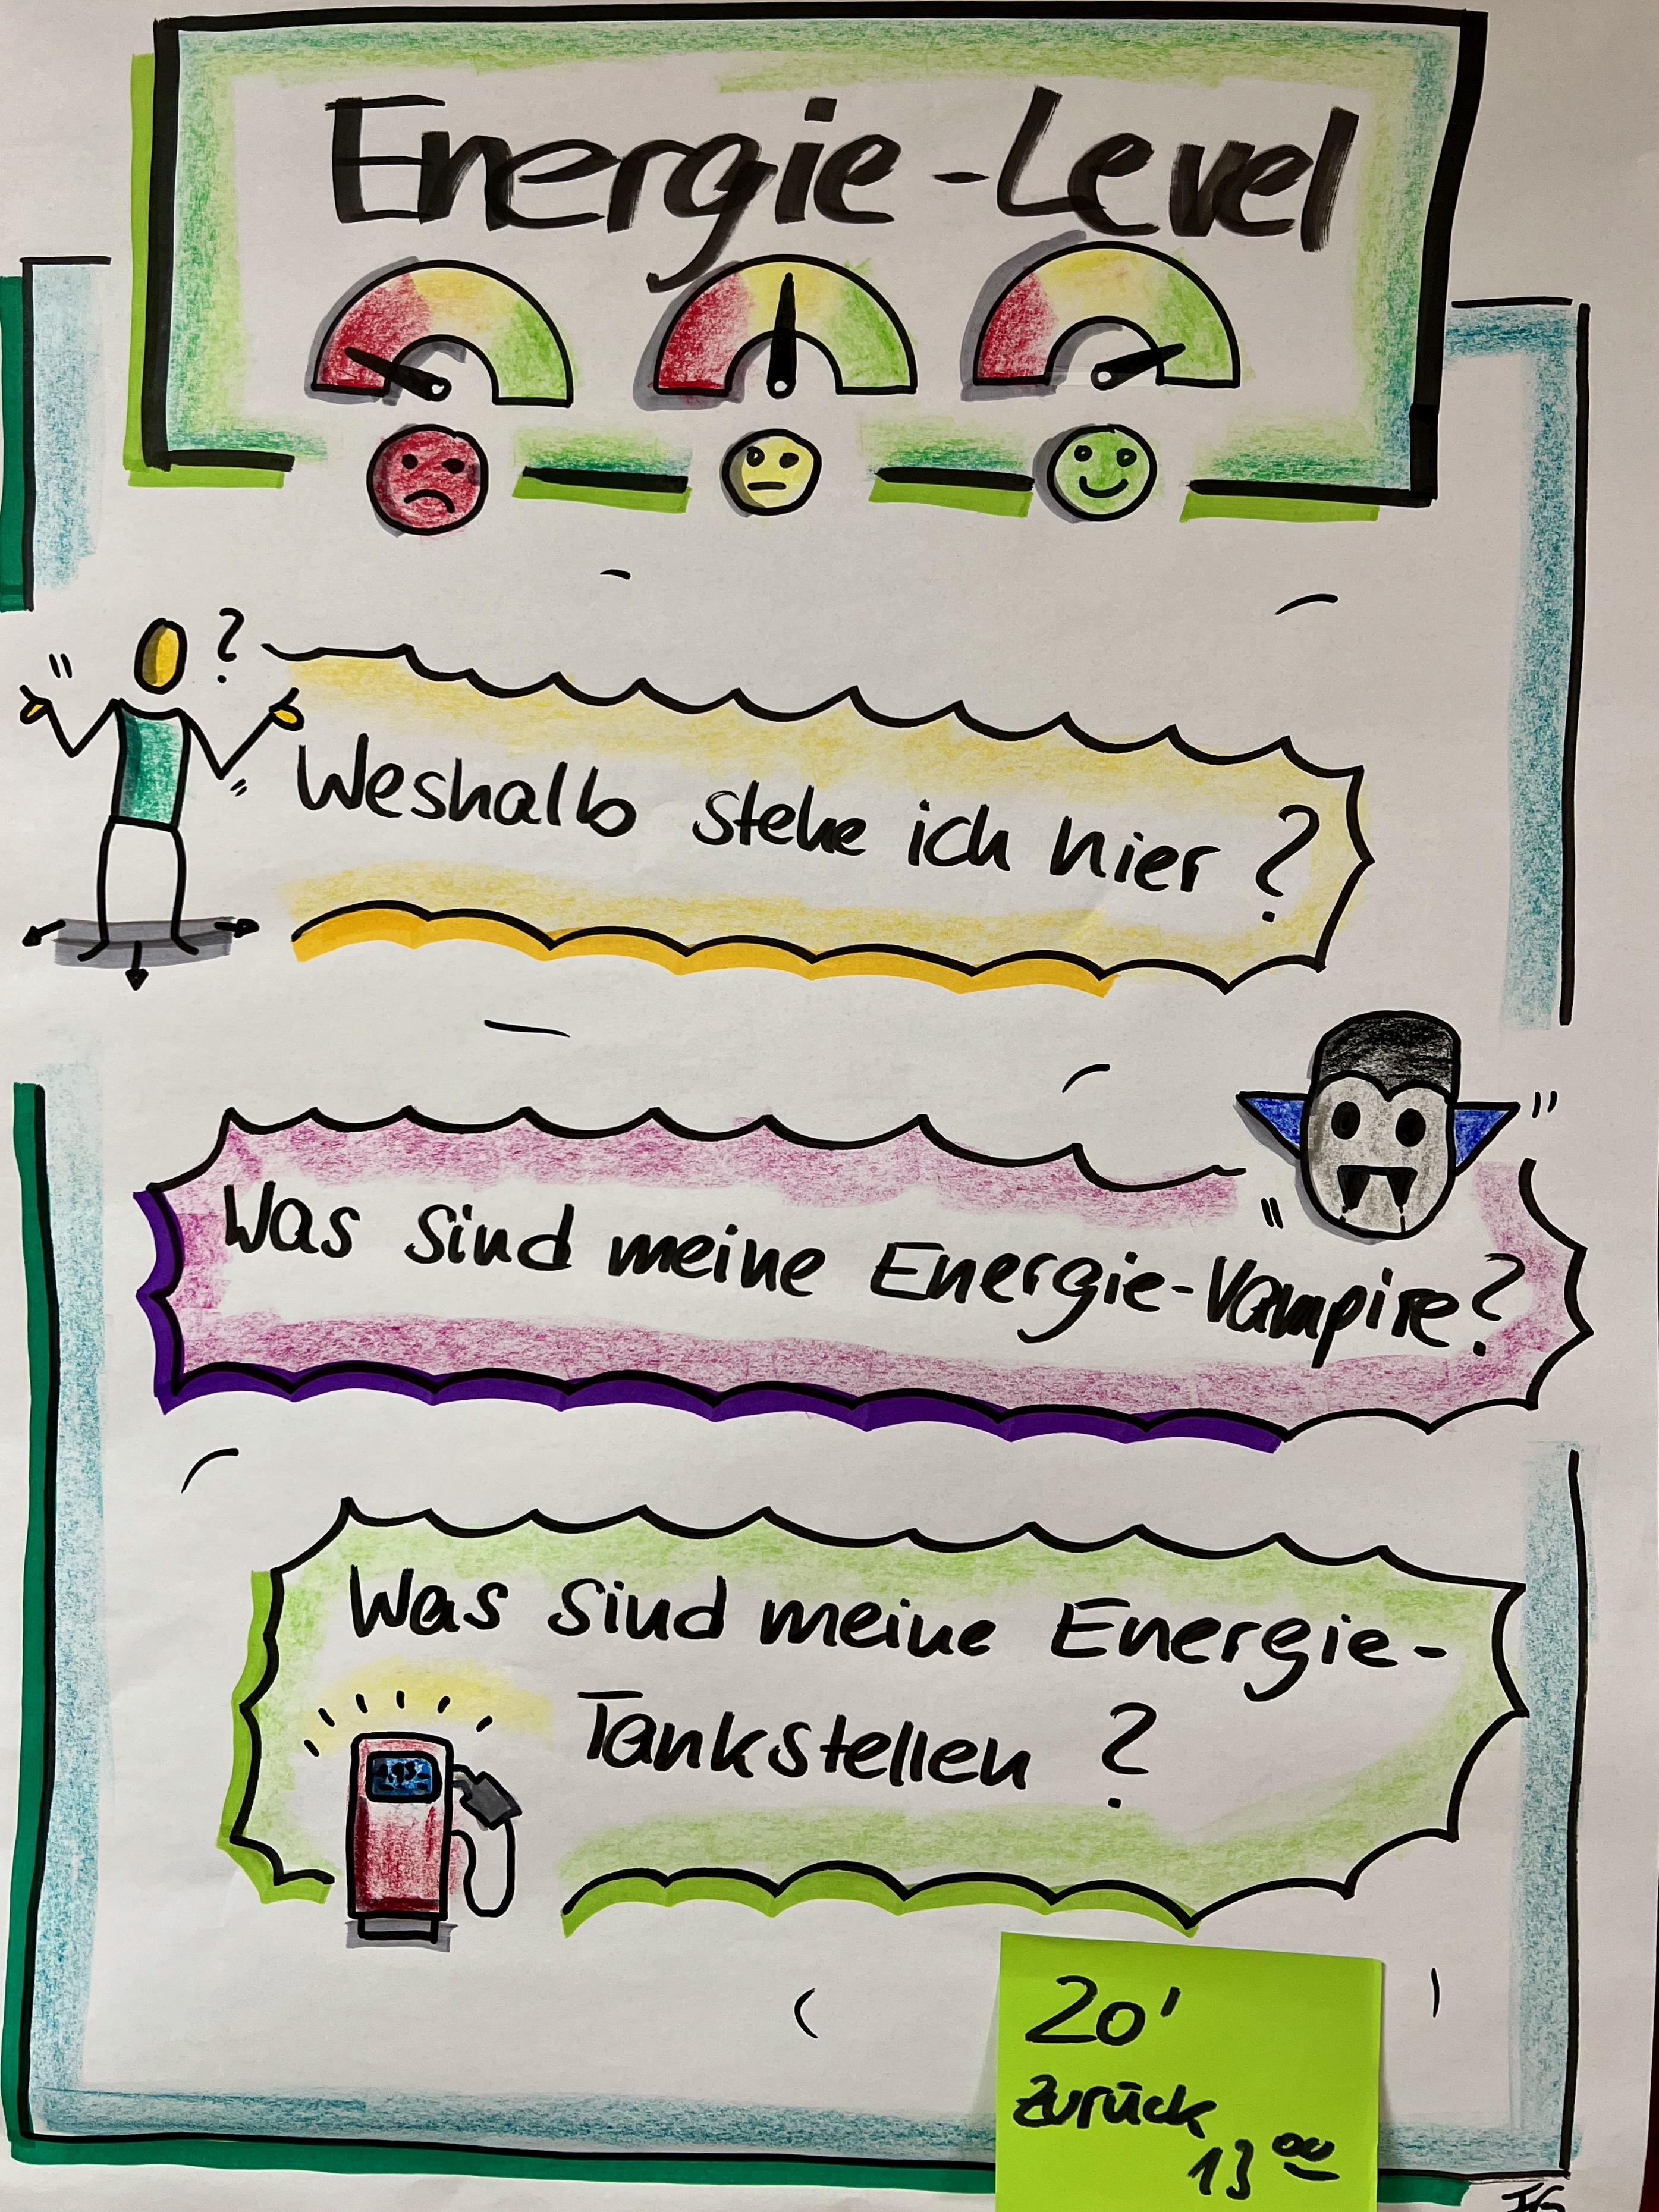 Energie-Level
?
Weshalb stehe ich hier?
Was sind meine Energie-Vampire?
Was sind meine Energie-
Tankstellen?
20'
zurück
13 00